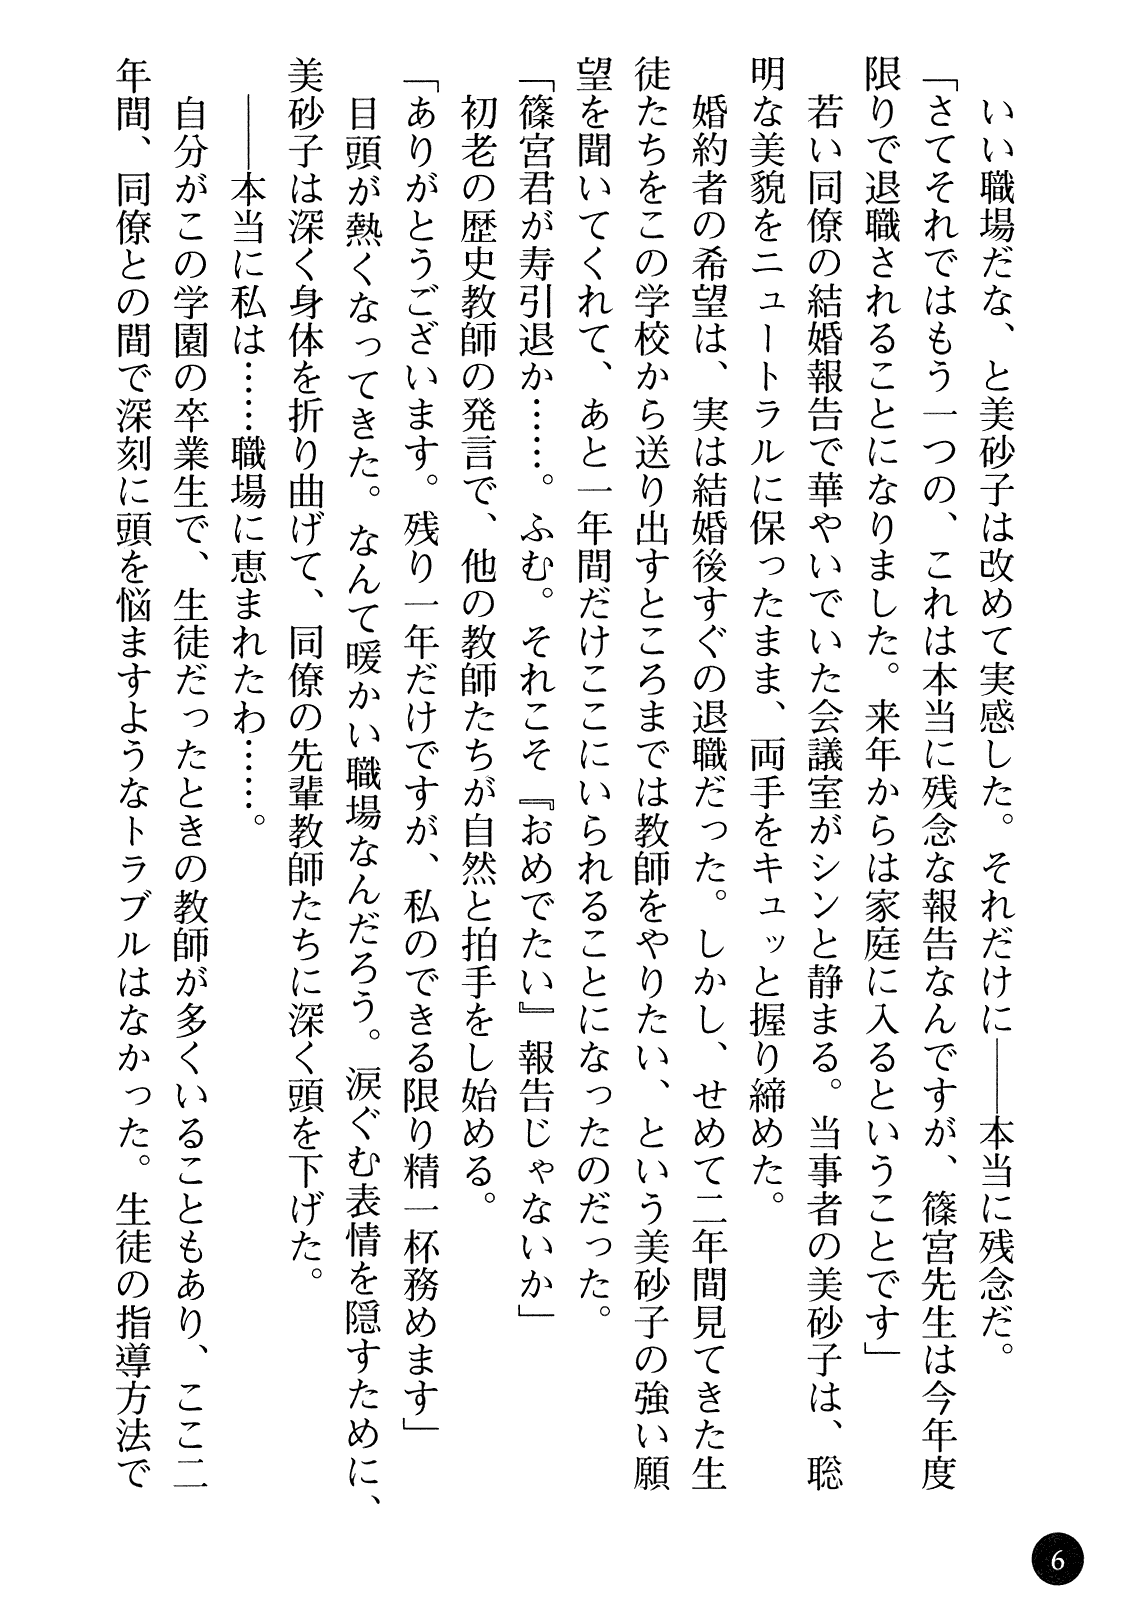 いい職場だな、と美砂子は改めて実感した。それだけに――本当に残念だ。
「さてそれではもう一つの、これは本当に残念な報告なんですが、篠宮先生は今年度
限りで退職されることになりました。来年からは家庭に入るということです」
若い同僚の結婚報告で華やいでいた会議室がシンと静まる。当事者の美砂子は、聡
明な美貌をニュートラルに保ったまま、両手をキュッと握り締めた。
婚約者の希望は、実は結婚後すぐの退職だった。しかし、せめて二年間見てきた生
徒たちをこの学校から送り出すところまでは教師をやりたい、という美砂子の強い願
望を聞いてくれて、あと一年間だけここにいられることになったのだった。
「篠宮君が寿引退か……。ふむ。それこそ『おめでたい』報告じゃないか」
初老の歴史教師の発言で、他の教師たちが自然と拍手をし始める。
「ありがとうございます。残り一年だけですが、私のできる限り精一杯務めます」
目頭が熱くなってきた。なんて暖かい職場なんだろう。涙ぐむ表情を隠すために、
美砂子は深く身体を折り曲げて、同僚の先輩教師たちに深く頭を下げた。
――本当に私は……職場に恵まれたわ……。
自分がこの学園の卒業生で、生徒だったときの教師が多くいることもあり、ここ二
年間、同僚との間で深刻に頭を悩ますようなトラブルはなかった。生徒の指導方法で
6